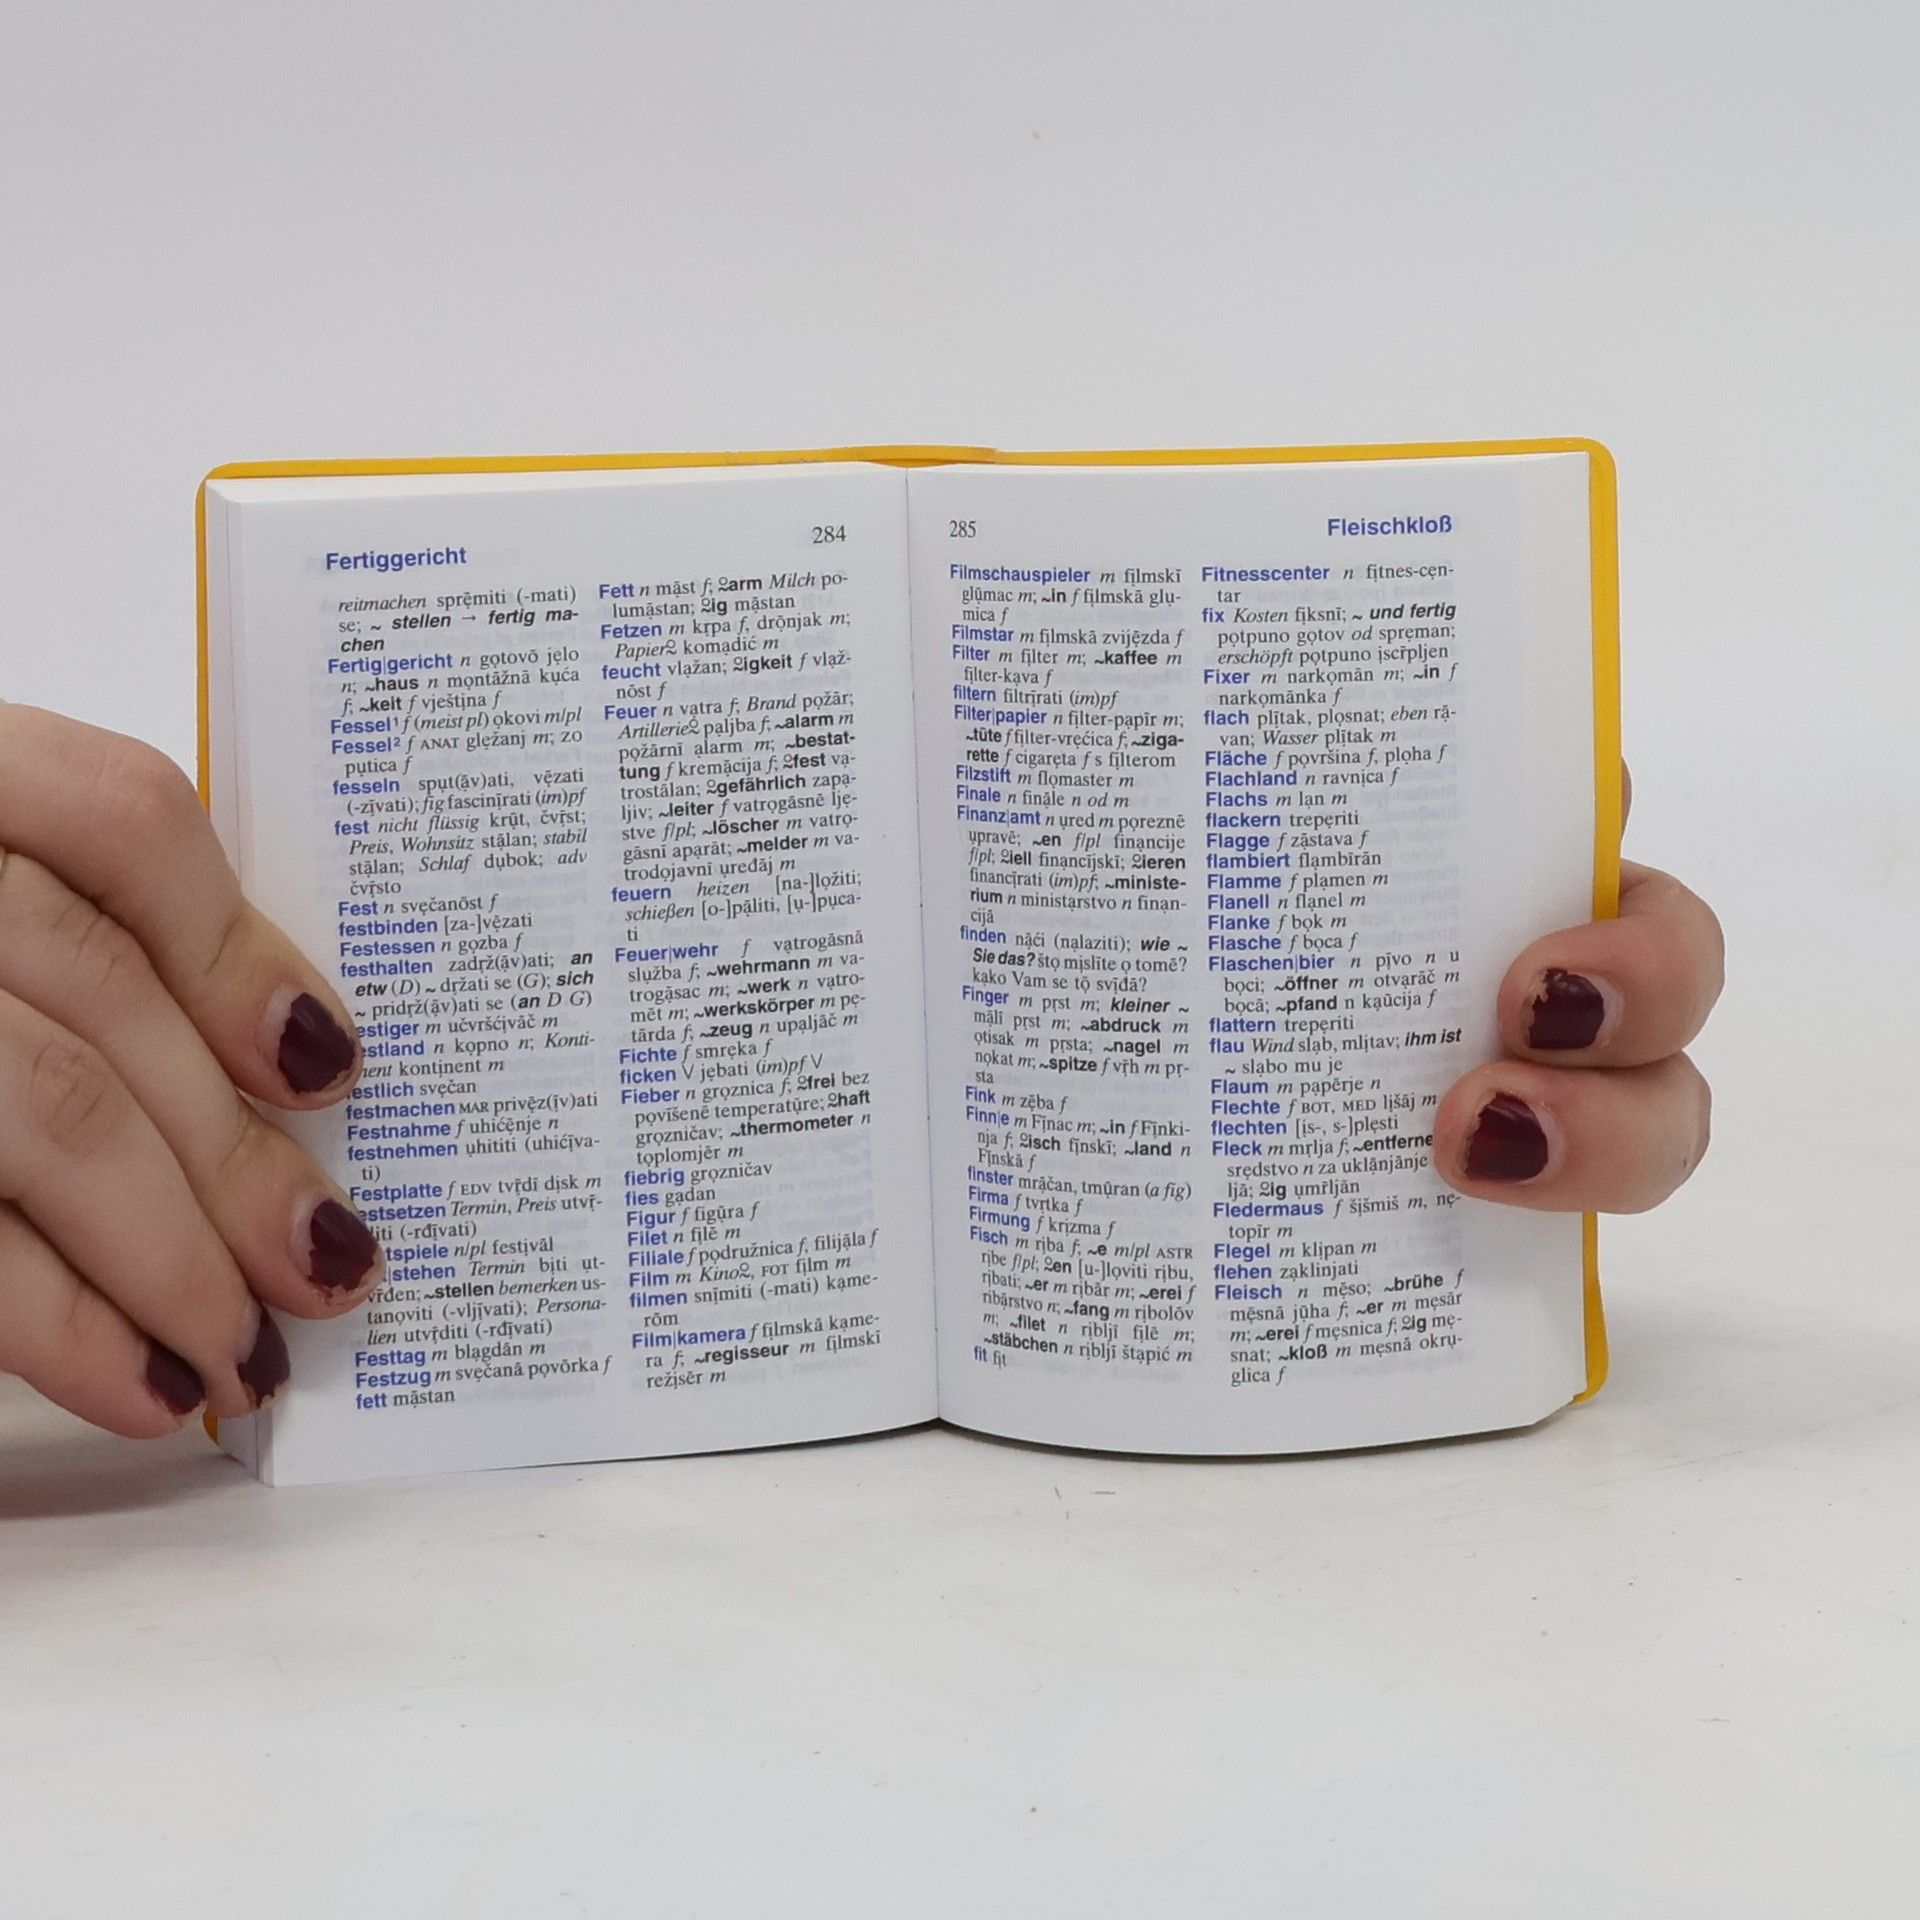 Fertiggericht
284
reitmachen sprẹ̄miti (-mati)
se; ~ stellen → fertig ma-
chen
Fertig|gericht n gọtovō jẹlo
n; ~haus n mọntāžnā kụća
f; ~keit f vještịna f
Fessel¹ f (meist pl) ọkovi m/pl
Fessel² f ANAT glẹžanj m; zo
pụtica f
fesseln spụt(ạ̄v)ati, vẹ̄zati
(-zị̄vati); fig fascinị̄rati (im)pf
fest nicht flüssig krụ̄t, čvṝst;
Preis, Wohnsitz stạ̄lan; stabil
stạ̄lan; Schlaf dụbok; adv
čvṝsto
Fest n svẹčanōst f
festbinden [za-]vẹ̄zati
Festessen n gọzba f
festhalten zadṛž(ạ̄v)ati; an
etw (D) ~ dṛžati se (G); sich
~ pridṛž(ạ̄v)ati se (an D G)
estiger m učvršćịvāč m
estland n kọpno n; Konti-
nent kontịnent m
estlich svẹčan
festmachen MAR privẹ̄z(ị̄v)ati
Festnahme f uhićẹ̄nje n
festnehmen ụhititi (uhićị̄va-
ti)
Festplatte f EDV tvṝdī dịsk m
estsetzen Termin, Preis utvṝ-
diti (-rđị̄vati)
tspiele n/pl festivāl
|stehen Termin bịti ụt-
vr̄đen; ~stellen bemerken us-
tanọviti (-vljị̄vati); Persona-
lien utvṝditi (-rđị̄vati)
Festtag m blạgdān m
Festzug m svẹčanā pọvōrka f
fett mạ̄stan
Fett n mạ̄st f; ⁠⁠2arm Milch po-
lumạ̄stan; 2ig mạ̄stan
Fetzen m kṛpa f, drọ̄njak m;
Papier2 komạdić m
feucht vlạžan; 2igkeit f vlạž-
nōst f
Feuer n vạtra f; Brand pọžār;
Artillerie2 pạljba f; ~alarm m
pọžārnī ạlarm m; ~bestat-
tung f kremạ̄cija f; 2fest va-
trostālan; 2gefährlich zapạ-
ljiv; ~leiter f vatrọgāsnē ljẹ-
stve f/pl; ~löscher m vatrọ-
gāsnī apạrāt; ~melder m va-
trodojavnī ụređāj m
feuern heizen [na-]lọžiti;
schießen [o-]pạ̄liti, [ụ-]pụca-
ti
Feuer|wehr f vạtrogāsnā
služba f; ~wehrmann m va-
trogạ̄sac m; ~werk n vạtro-
mēt m; ~werkskörper m pẹ-
tārda f; ~zeug n upạljāč m
Fichte f smrẹka f
ficken V jẹbati (im)pf V
Fieber n grọznica f; 2frei bez
pọvīšenē temperatụ̄re; 2haft
grọzničav; ~thermometer n
tọplomjēr m
fiebrig grọzničav
fies gạdan
Figur f figụ̄ra f
Filet n filē m
Filiale f pọdružnica f, filijạ̄la f
Film m Kino2, FOT fịlm m
filmen snị̄miti (-mati) kạme-
rōm
Film|kamera f fịlmskā kạme-
ra f; ~regisseur m fịlmskī
režịsēr m
285
Fleischkloß
Filmschauspieler m fịlmskī
glụ̄mac m; ~in f fịlmskā glụ-
mica f
Filmstar m fịlmskā zvijẹ̄zda f
Filter m fịlter m; ~kaffee m
fịlter-kạva f
filtern filtrị̄rati (im)pf
Filter|papier n fịlter-pạpīr m;
~tüte f filter-vrẹćica f; ~ziga-
rette f cigarẹta f s fịlterom
Filzstift m flọmaster m
Finale n finạ̄le n od m
Finanz|amt n ụred m pọreznē
ụpravē; ~en f/pl financije
f/pl; 2iell financījskī; 2ieren
financị̄rati (im)pf; ~ministe-
rium n ministạrstvo n finạn-
cijā
finden nạ̄ći (nạlaziti); wie ~
Sie das? štọ mịslīte ọ tomē?
kạko Vam se tọ̄ svịđā?
Finger m pṛst m; kleiner ~
mạ̄lī pṛst m; ~abdruck m
ọtisak m pṛsta; ~nagel m
nọkat m; ~spitze f vṝh m pṛ-
sta
Fink m zẹ̄ba f
Finn|e m Fị̄nac m; ~in f Fị̄nki-
nja f; 2isch fị̄nskī; ~land n
Fị̄nskā f
finster mrạ̄čan, tmụ̄ran (a fig)
Firma f tvṛtka f
Firmung f krịzma f
Fisch m rịba f; ~e m/pl ASTR
rịbe f/pl; 2en [u-]lọviti rịbu,
rịbati; ~er m rịbār m; ~erei f
ribạ̄rstvo n; ~fang m rịbolōv
m; ~filet n rịbljī filē m;
~stäbchen n rịbljī štạpić m
fit fịt
Fitnesscenter n fịtnes-cẹn-
tar
fix Kosten fịksnī; ~ und fertig
pọtpuno gọtov od sprẹman;
erschöpft pọtpuno ịscr̄pljen
Fixer m narkọmān m; ~in f
narkọmānka f
flach plị̄tak, plọsnat; eben rạ̄-
van; Wasser plị̄tak m
Fläche f pọvršina f, plọha f
Flachland n ravnịca f
Flachs m lạn m
flackern trepẹriti
Flagge f zạ̄stava f
flambiert flạmbīrān
Flamme f plạmen m
Flanell n flạnel m
Flanke f bọk m
Flasche f bọca f
Flaschen|bier n pị̄vo n u
bọci; ~öffner m otvạrāč m
bọcā; ~pfand n kạūcija f
flattern trepẹriti
flau Wind slạb, mlịtav; ihm ist
~ slạbo mu je
Flaum m papẹ̄rje n
Flechte f BOT, MED lịšāj m
flechten [is-, s-]plẹsti
Fleck m mṛlja f; ~entferne
srẹdstvo n za uklạ̄njānje
ljā; 2ig ụmr̄ljān
Fledermaus f šịšmiš m, nẹ-
topīr m
Flegel m klịpan m
flehen zạklinjati
Fleisch n mẹ̄so; ~brühe f
mẹ̄snā jụ̄ha f; ~er m mẹsār
m; ~erei f mẹsnica f; 2ig mẹ-
snat; ~kloß m mẹsnā okrụ-
glica f